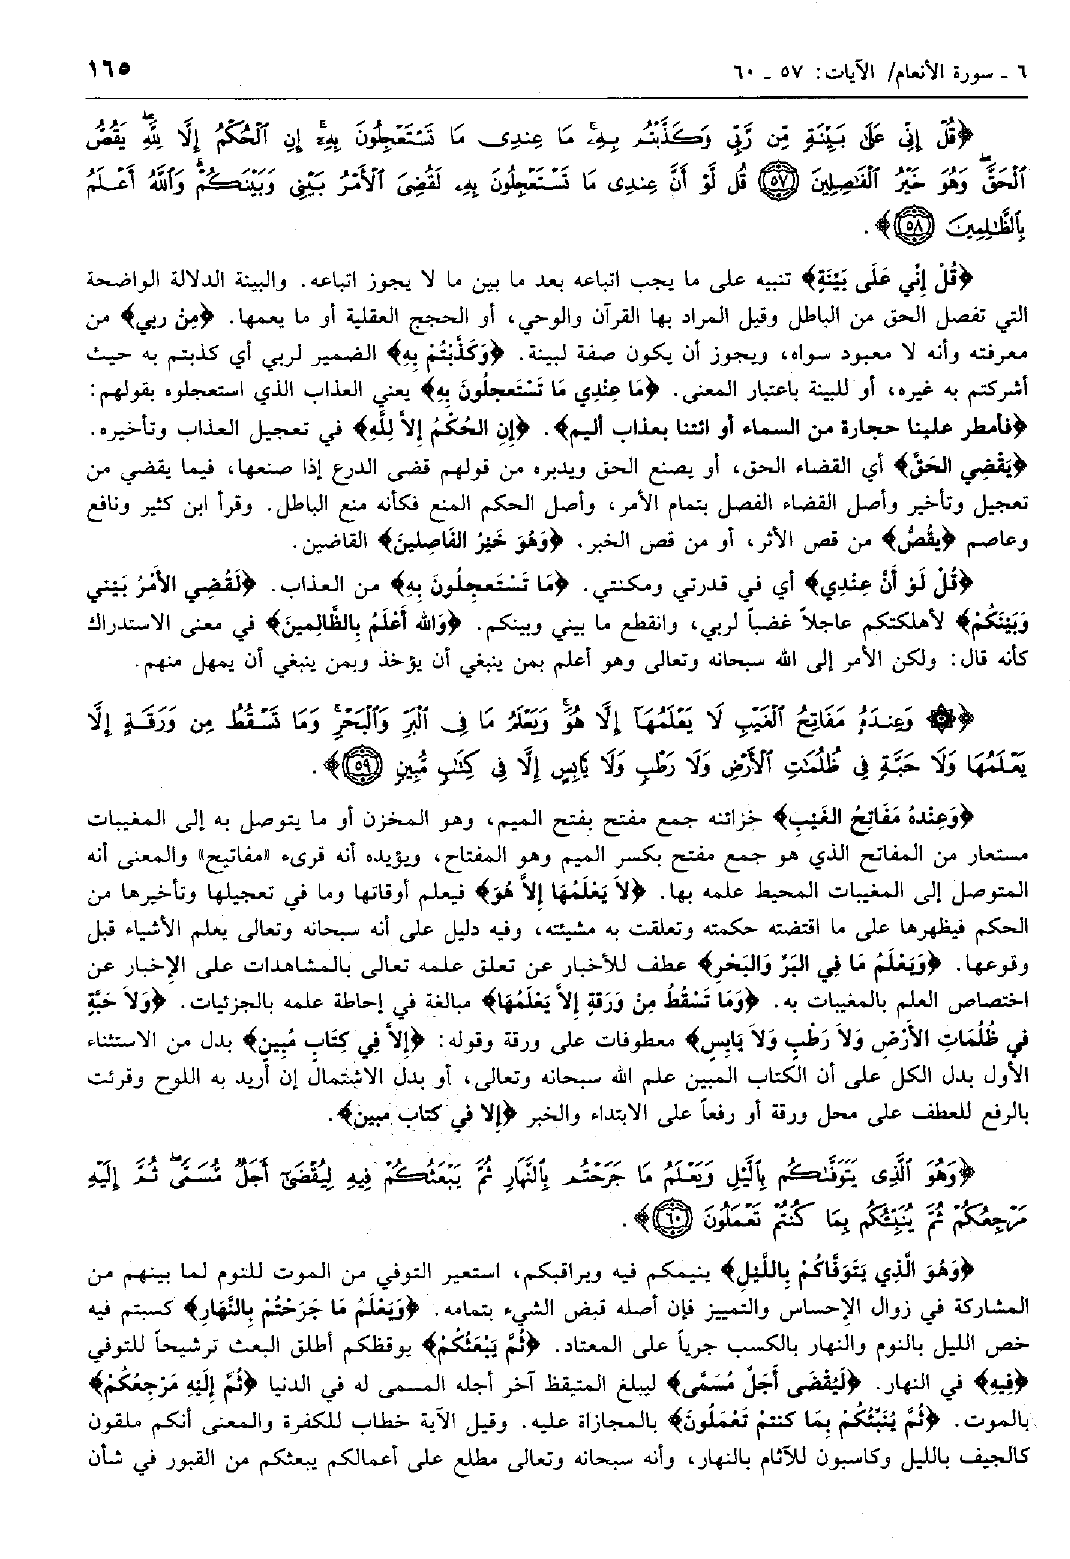 ٦ ـ سورة الأنعام/ الآيات: ٥٧ ـ ٦٠
١٦٥
﴿قُلْ إِنِّي عَلَىٰ بَيِّنَةٍ مِّن رَّبِّي وَكَذَّبْتُم بِهِۦۚ مَا عِندِي مَا تَسْتَعْجِلُونَ بِهِۦٓۚ إِنِ ٱلْحُكْمُ إِلَّا لِلَّهِۖ يَقُصُّ
ٱلْحَقَّۖ وَهُوَ خَيْرُ ٱلْفَٰصِلِينَ ﴿٥٧﴾ قُل لَّوْ أَنَّ عِندِي مَا تَسْتَعْجِلُونَ بِهِۦ لَقُضِيَ ٱلْأَمْرُ بَيْنِي وَبَيْنَكُمْۗ وَٱللَّهُ أَعْلَمُ
بِٱلظَّٰلِمِينَ ﴿٥٨﴾﴾.
﴿قُلْ إِنِّي عَلَى بَيِّنَةٍ﴾ تنبيه على ما يجب اتباعه بعد ما بين ما لا يجوز اتباعه. والبينة الدلالة الواضحة
التي تفصل الحق من الباطل وقيل المراد بها القرآن والوحي، أو الحجج العقلية أو ما يعمها. ﴿مِنْ ربي﴾ من
معرفته وأنه لا معبود سواه، ويجوز أن يكون صفة لبينة. ﴿وَكَذَّبْتُمْ بِهِ﴾ الضمير لربي أي كذبتم به حيث
أشركتم به غيره، أو للبينة باعتبار المعنى. ﴿مَا عِنْدِي مَا تَسْتَعْجِلُونَ بِهِ﴾ يعني العذاب الذي استعجلوه بقولهم:
﴿فأمطر علينا حجارة من السماء أو ائتنا بعذاب أليم﴾. ﴿إِنِ الحُكْمُ إِلاَّ لِلَّهِ﴾ في تعجيل العذاب وتأخيره.
﴿يَقْضِي الحَقَّ﴾ أي القضاء الحق، أو يصنع الحق ويدبره من قولهم قضى الدرع إذا صنعها، فيما يقضي من
تعجيل وتأخير وأصل القضاء الفصل بتمام الأمر، وأصل الحكم المنع فكأنه منع الباطل. وقرأ ابن كثير ونافع
وعاصم ﴿يقُصُّ﴾ من قص الأثر، أو من قص الخبر. ﴿وَهُوَ خَيْرُ الفَاصِلينَ﴾ القاضين.
﴿قُلْ لَوْ أَنَّ عِنْدِي﴾ أي في قدرتي ومكنتي. ﴿مَا تَسْتَعجِلُونَ بِهِ﴾ من العذاب. ﴿لَقُضِي الأَمْرُ بَيْنِي
وَبَيْنَكُمْ﴾ لأهلكتكم عاجلاً غضباً لربي، وانقطع ما بيني وبينكم. ﴿وَالله أَعْلَمُ بِالظَّالِمينَ﴾ في معنى الاستدراك
كأنه قال: ولكن الأمر إلى الله سبحانه وتعالى وهو أعلم بمن ينبغي أن يؤخذ وبمن ينبغي أن يمهل منهم.
﴿۞ وَعِندَهُۥ مَفَاتِحُ ٱلْغَيْبِ لَا يَعْلَمُهَآ إِلَّا هُوَۚ وَيَعْلَمُ مَا فِى ٱلْبَرِّ وَٱلْبَحْرِۚ وَمَا تَسْقُطُ مِن وَرَقَةٍ إِلَّا
يَعْلَمُهَا وَلَا حَبَّةٍ فِى ظُلُمَٰتِ ٱلْأَرْضِ وَلَا رَطْبٍ وَلَا يَابِسٍ إِلَّا فِى كِتَٰبٍ مُّبِينٍ ﴿٥٩﴾﴾.
﴿وَعِنْدهُ مَفَاتِحُ الغَيبِ﴾ خزائنه جمع مفتح بفتح الميم، وهو المخزن أو ما يتوصل به إلى المغيبات
مستعار من المفاتح الذي هو جمع مفتح بكسر الميم وهو المفتاح، ويؤيده أنه قرىء «مفاتيح» والمعنى أنه
المتوصل إلى المغيبات المحيط علمه بها. ﴿لاَ يَعْلَمُهَا إِلاَّ هُوَ﴾ فيعلم أوقاتها وما في تعجيلها وتأخيرها من
الحكم فيظهرها على ما اقتضته حكمته وتعلقت به مشيئته، وفيه دليل على أنه سبحانه وتعالى يعلم الأشياء قبل
وقوعها. ﴿وَيَعْلَمُ مَا فِي البَرِّ وَالبَحْرِ﴾ عطف للأخبار عن تعلق علمه تعالى بالمشاهدات على الإخبار عن
اختصاص العلم بالمغيبات به. ﴿وَمَا تَسْقُطُ مِنْ وَرَقَةٍ إِلاَّ يَعْلَمُهَا﴾ مبالغة في إحاطة علمه بالجزئيات. ﴿وَلاَ حَبَّةٍ
في ظُلُمَاتِ الأَرْضِ وَلاَ رَطْبٍ وَلاَ يَابِسٍ﴾ معطوفات على ورقة وقوله: ﴿إِلاَّ فِي كِتَابٍ مُبِينٍ﴾ بدل من الاستثناء
الأول بدل الكل على أن الكتاب المبين علم الله سبحانه وتعالى، أو بدل الاشتمال إن أريد به اللوح وقرئت
بالرفع للعطف على محل ورقة أو رفعاً على الابتداء والخبر ﴿إلا في كتاب مبين﴾.
﴿وَهُوَ ٱلَّذِى يَتَوَفَّىٰكُم بِٱلَّيْلِ وَيَعْلَمُ مَا جَرَحْتُم بِٱلنَّهَارِ ثُمَّ يَبْعَثُكُمْ فِيهِ لِيُقْضَىٰٓ أَجَلٌ مُّسَمًّىۖ ثُمَّ إِلَيْهِ
مَرْجِعُكُمْ ثُمَّ يُنَبِّئُكُم بِمَا كُنتُمْ تَعْمَلُونَ ﴿٦٠﴾﴾.
﴿وَهُوَ الَّذِي يَتَوَفَّاكُمْ بِاللَّيلِ﴾ ينيمكم فيه ويراقبكم، استعير التوفي من الموت للنوم لما بينهم من
المشاركة في زوال الإحساس والتمييز فإن أصله قبض الشيء بتمامه. ﴿وَيَعْلَمُ مَا جَرَحْتُمْ بِالنَّهَارِ﴾ كسبتم فيه
خص الليل بالنوم والنهار بالكسب جرياً على المعتاد. ﴿ثُمَّ يَبْعَثُكُمْ﴾ يوقظكم أطلق البعث ترشيحاً للتوفي
﴿فِيهِ﴾ في النهار. ﴿لَيُقْضَى أَجَلٌ مُسَمَّى﴾ ليبلغ المتيقظ آخر أجله المسمى له في الدنيا ﴿ثُمَّ إِلَيْهِ مَرْجِعُكُمْ﴾
بالموت. ﴿ثُمَّ يُنَبِّئُكُمْ بِمَا كنتمْ تَعْمَلُونَ﴾ بالمجازاة عليه. وقيل الآية خطاب للكفرة والمعنى أنكم ملقون
كالجيف بالليل وكاسبون للآثام بالنهار، وأنه سبحانه وتعالى مطلع على أعمالكم يبعثكم من القبور في شأن